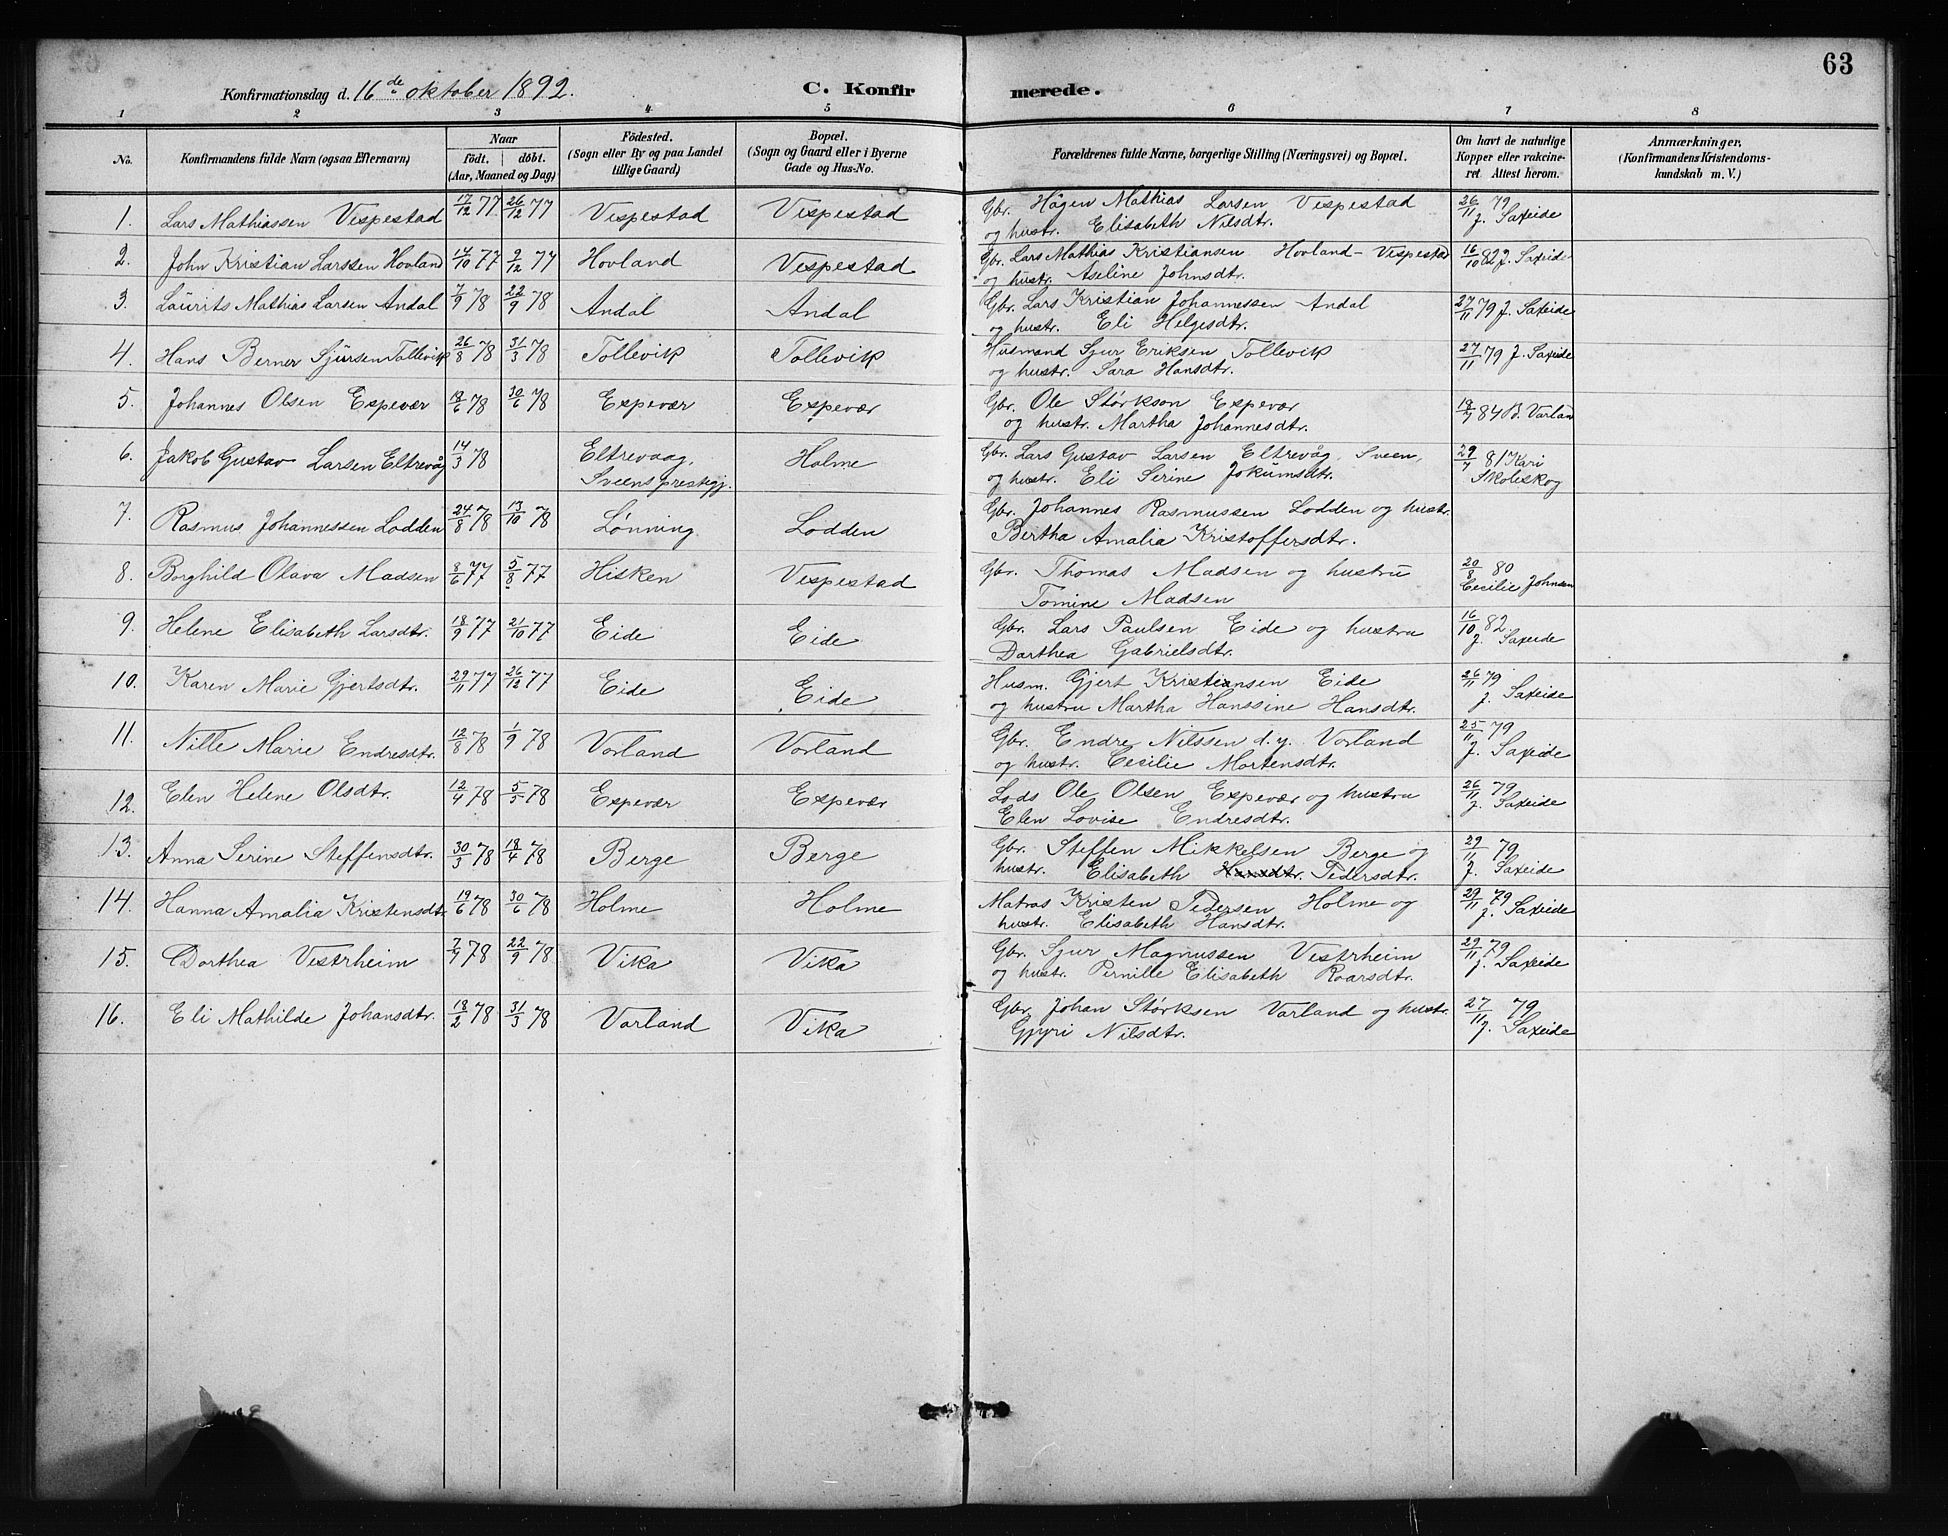 63
Konfirmationsdag d. 16de oktober 1892. C. Konfirmerede.
1 2 3 4 5 6 7 8
No. Konfirmandens fulde Navn (ogsaa Efternavn) Naar födt. döbt. (Aar, Maaned og Dag) Födested. (Sogn eller By og paa Landet tillige Gaard) Bopæl. (Sogn og Gaard eller i Byerne Gade og Hus-No. Forældrenes fulde Navne, borgerlige Stilling (Næringsvei) og Bopæl. Om havt de naturlige Kopper eller vakcineret. Attest herom. Anmærkninger, (Konfirmandens Kristendomskundskab m. V.)
1. Lars Mathiassen Vespestad 17/12 77 26/12 77 Vespestad Vespestad Gbr. Hågen Mathias Larsen Vespestad 26/11 79
og hustr. Elisabeth Nilsdtr. J. Saxeide
2. John Kristian Larssen Hovland 14/10 77 9/12 77 Hovland Vespestad Gbr. Lars Mathias Kristiansen Hovland - Vespestad 16/10 82 J. Saxeide
og hustr. Aseline Johnsdtr.
3. Laurits Mathias Larsen Andal 7/9 78 22/9 78 Andal Andal Gbr. Lars Kristian Johannessen Andal 27/11 79 J. Saxeide
og hustr. Eli Helgesdtr.
4. Hans Berner Sjursen Tollevik 26/8 78 31/3 78 Tollevik Tollevik Husmand Sjur Eriksen Tollevik 27/11 79 J. Saxeide
og hustr. Sara Hansdtr.
5. Johannes Olsen Espevær 18/6 78 30/6 78 Espevær Espevær Gbr. Ole Størkson Espevær 84 B. Varland
og hustr. Martha Johannesdtr.
6. Jakob Gustav Larsen Eltrevåg 14/3 78 Eltrevaag, Holme Gbr. Lars Gustav Larsen Eltrevåg, Sveen, 29/7 81 Kari
Sveens prestegj. og hustr. Eli Serine Jokumsdtr. Skoleskog
7. Rasmus Johannessen Lodden 24/8 78 13/10 78 Lønning Lodden Gbr. Johannes Rasmussen Lodden og hustr.
Bertha Amalia Kristoffersdtr.
8. Borghild Olava Madsen 8/6 77 5/8 77 Hisken Vespestad Gbr. Thomas Madsen og hustru 20/8 80
Tomine Madsen Cecilie Johnsen
9. Helene Elisabeth Larsdtr. 18/9 77 21/10 77 Eide Eide Gbr. Lars Paulsen Eide og hustru 16/10 82
Darthea Gabrielsdtr. J. Saxeide
10. Karen Marie Gjertsdtr. 29/11 77 26/12 77 Eide Eide Husm. Gjert Kristiansen Eide 26/11 79
og hustru Martha Hanssine Hansdtr. J. Saxeide
11. Nille Marie Endresdtr. 12/8 78 1/9 78 Vorland Vorland Gbr. Endre Nilssen d. y. Vorland 25/11 79
og hustr. Cecilie Mortensdtr. J. Saxeide
12. Elen Helene Olsdtr. 12/4 78 5/5 78 Espevær Espevær Lods Ole Olsen Espevær og hustru 26/11 79
Elen Lovise Endresdtr. J. Saxeide
13. Anna Serine Steffensdtr. 30/3 78 18/4 78 Berge Berge Gbr. Steffen Mikkelsen Berge og 29/11 79
hustr. Elisabeth Hansdtr. Pedersdtr. J. Saxeide
14. Hanna Amalia Kristensdtr 19/6 78 30/6 78 Holme Holme Matros Kristen Pedersen Holme og 29/11 79
hustr. Elisabeth Hansdtr. J. Saxeide
15. Dorthea Vestrheim 78 22/9 78 Vika Vika Gbr. Sjur Magnussen Vestrheim 29/11 79
og hustr. Pernille Elisabeth Roarsdtr. J. Saxeide
16. Eli Mathilde Johansdtr. 18/2 78 31/3 78 Varland Vika Gbr. Johan Størksen Varland og hustr. 27/11 79
Nilsdtr. J. Saxeide